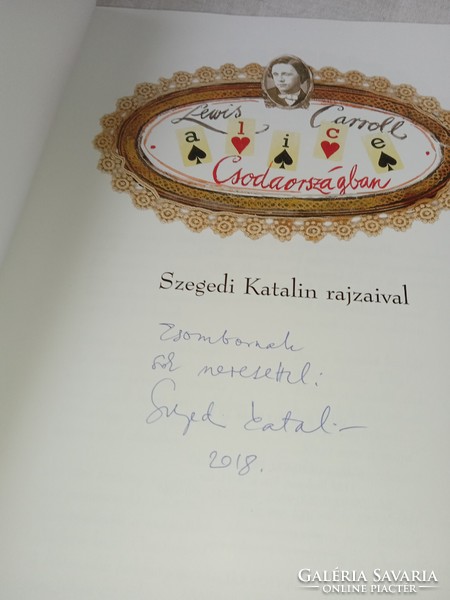 Lewis Carroll
alice
Csodaországban
Szegedi Katalin rajzaival
Zsombornak
sok szeretettel:
Szegedi Katalin
2018.
GALÉRIA SAVARIA
ONLINE PIACTÉR